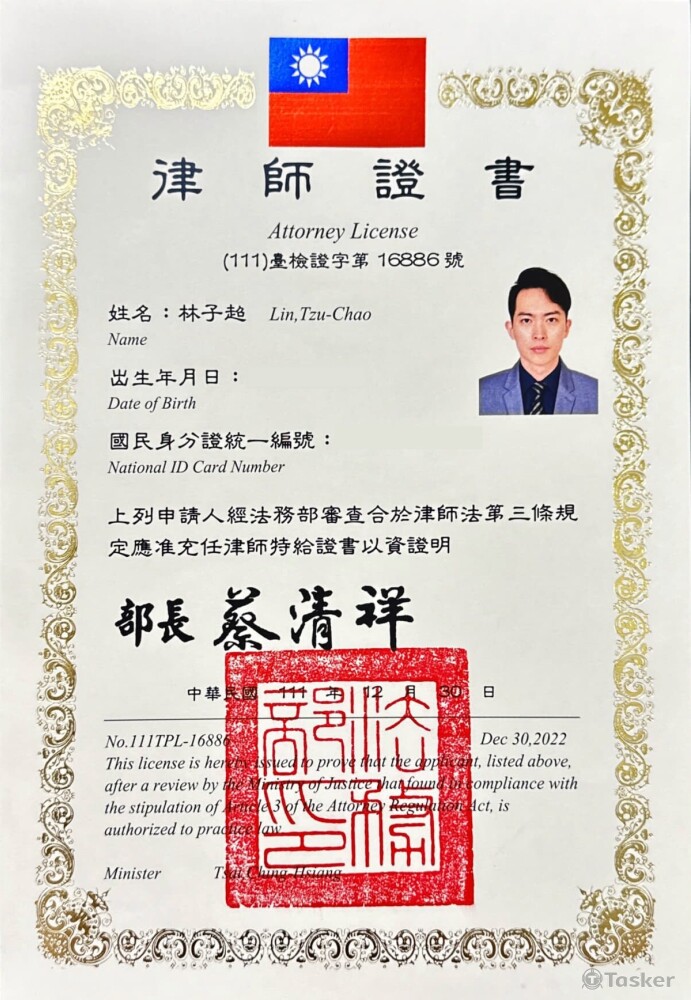 律師證書
Attorney License
(111)臺檢證字第 16886 號
姓名：林子超 Lin,Tzu-Chao
Name
出生年月日：
Date of Birth
國民身分證統一編號：
National ID Card Number
上列申請人經法務部審查合於律師法第三條規
定應准充任律師特給證書以資證明
部長 蔡清祥
中華民國 111 年 12 月 30 日
法務部印
No.111TPL-16886
Dec 30,2022
This license is hereby issued to prove that the applicant, listed above,
after a review by the Ministry of Justice that found in compliance with
the stipulation of Article 3 of the Attorney Regulation Act, is
authorized to practice law
Minister Tsai,Ching-Hsiang
Tasker